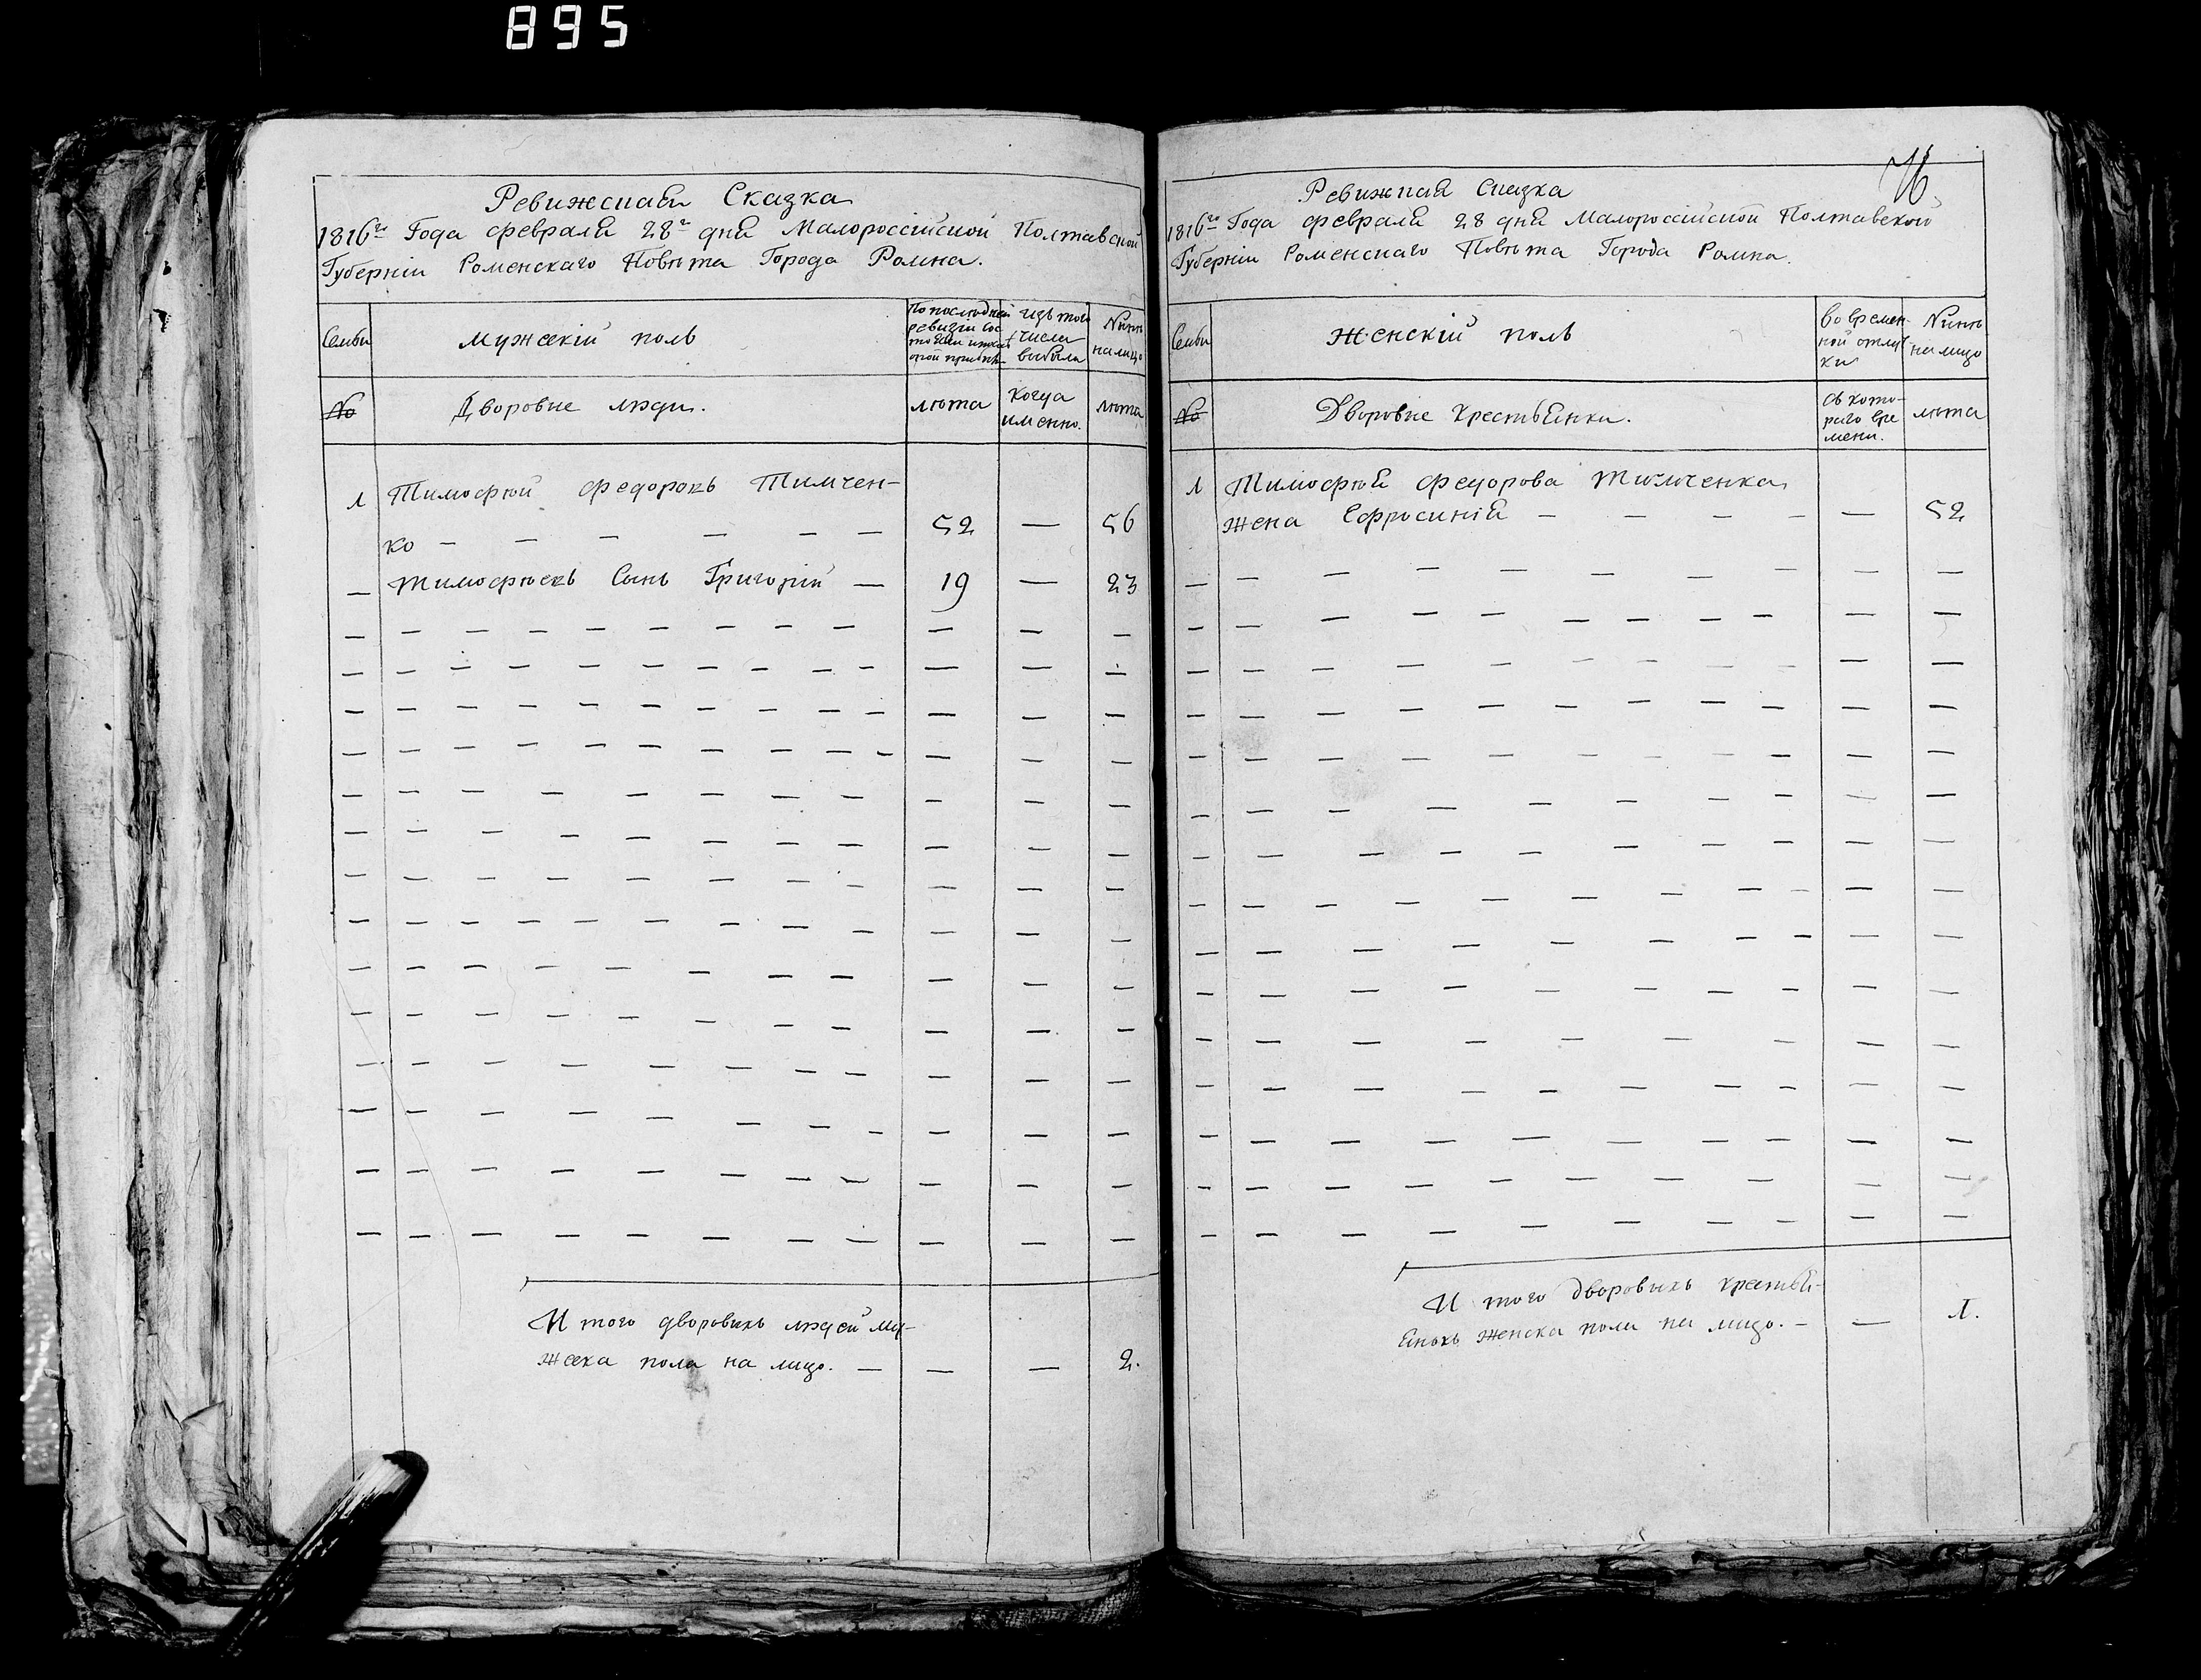 895
76
Ревижская Сказка
1816го Года февраля 28го дня Малороссійской Полтавской
Губерніи Роменскаго Повѣта Города Ромна.
Семьи
мужескій полъ
По последней
ревизіи сос
изъ того
числа
выбыло
Нынѣ
налицо
№
Дворовые люди.
лѣта
когда
именно.
лѣта
1 Тимофей Федоровъ Тимчен-
ко — — — — — — 52 — 56
— Тимофѣевъ Сынъ Григорій — 19 — 23
И того дворовыхъ людей му-
жеска пола на лицо. — — — 2.
Ревижная Сказка
1816го Года февраля 28 дня Малороссійской Полтавской
Губерніи Роменскаго Повѣта Города Ромна.
Семьи
Женскій полъ
во времен-
ной отлуч
ки
Нынѣ
на лицо
№
Дворовые крестьянки.
съ кото-
раго вре
мени.
лѣта
1 Тимофея Федорова Тимченка
жена Ефросинія — — — — — 52
И того дворовыхъ крестья-
янокъ женска пола на лицо. — — 1.